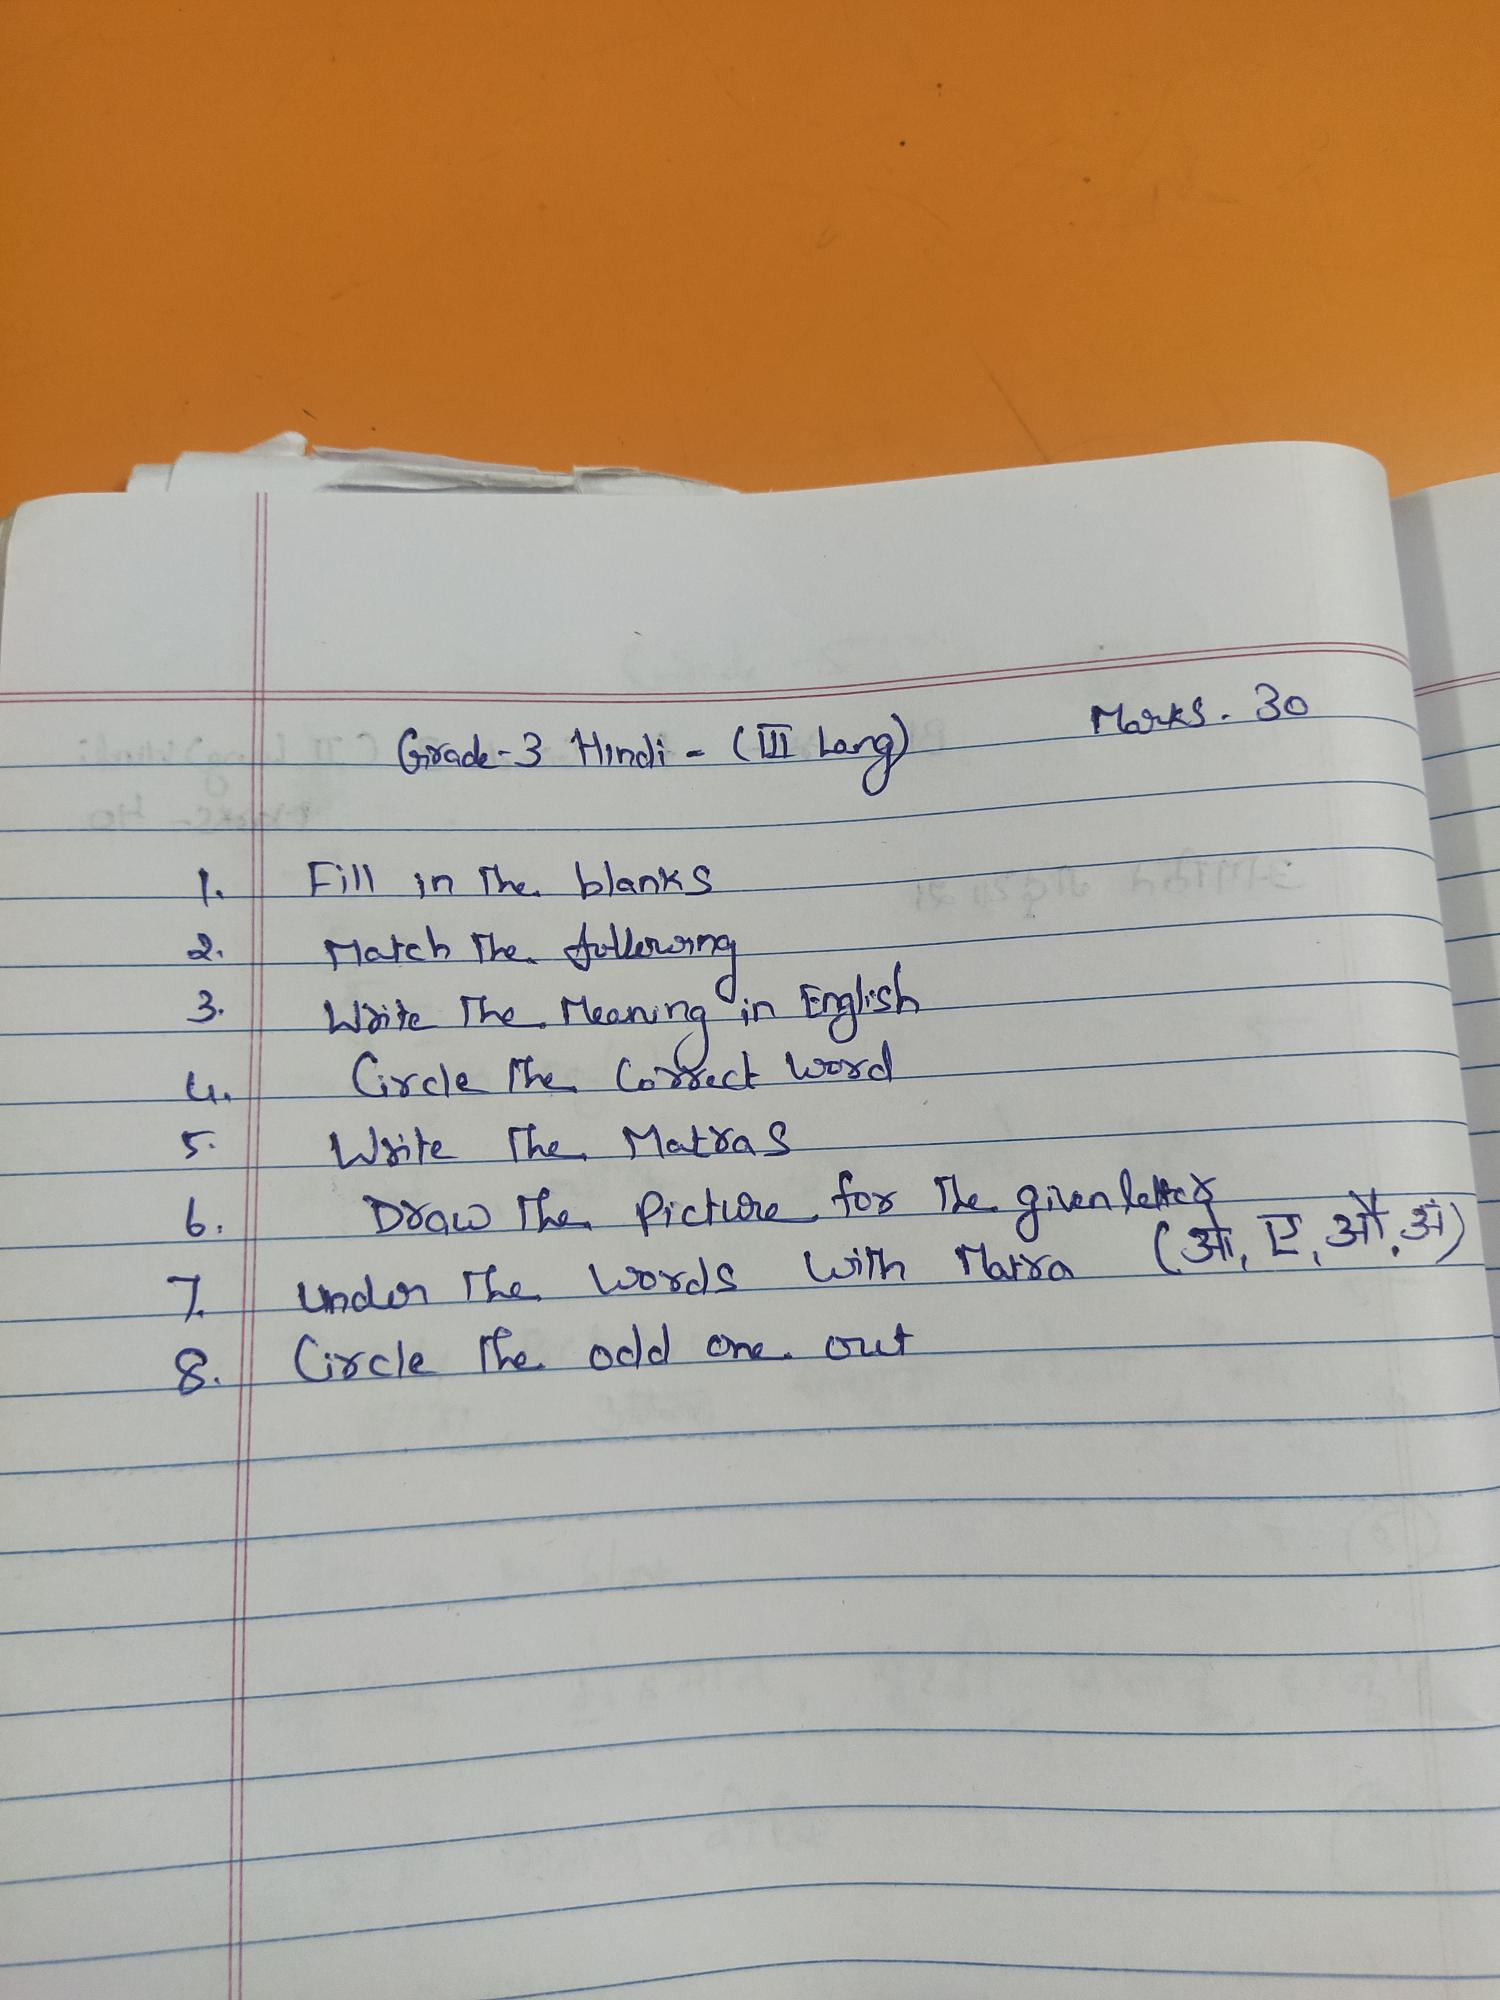 Grade-3 Hindi - (III Lang) Marks. 30
1. Fill in The blanks
2. Match The following
3. Write The Meaning in English
4. Circle The Correct word
5. Write The Matras
6. Draw The Picture for The given letter
(ओ, ए, औ, अं)
7. Under The words with Matra
8. Circle The odd one out